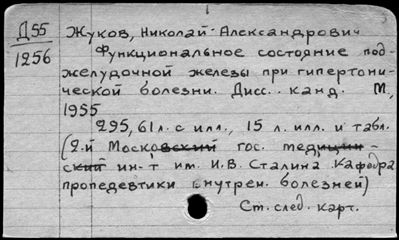 Д55
1256
Жуков, Николай Александрович
Функциональное состояние под-
желудочной железы при гипертони-
ческой болезни. Дисс. канд. М,
1955
295, 61 л. с илл., 15 л. илл. и табл.
(2-й Московский гос. медицин-
ский ин-т им. И.В. Сталина Кафедра
пропедевтики внутрен. болезней)
Ст. след. карт.